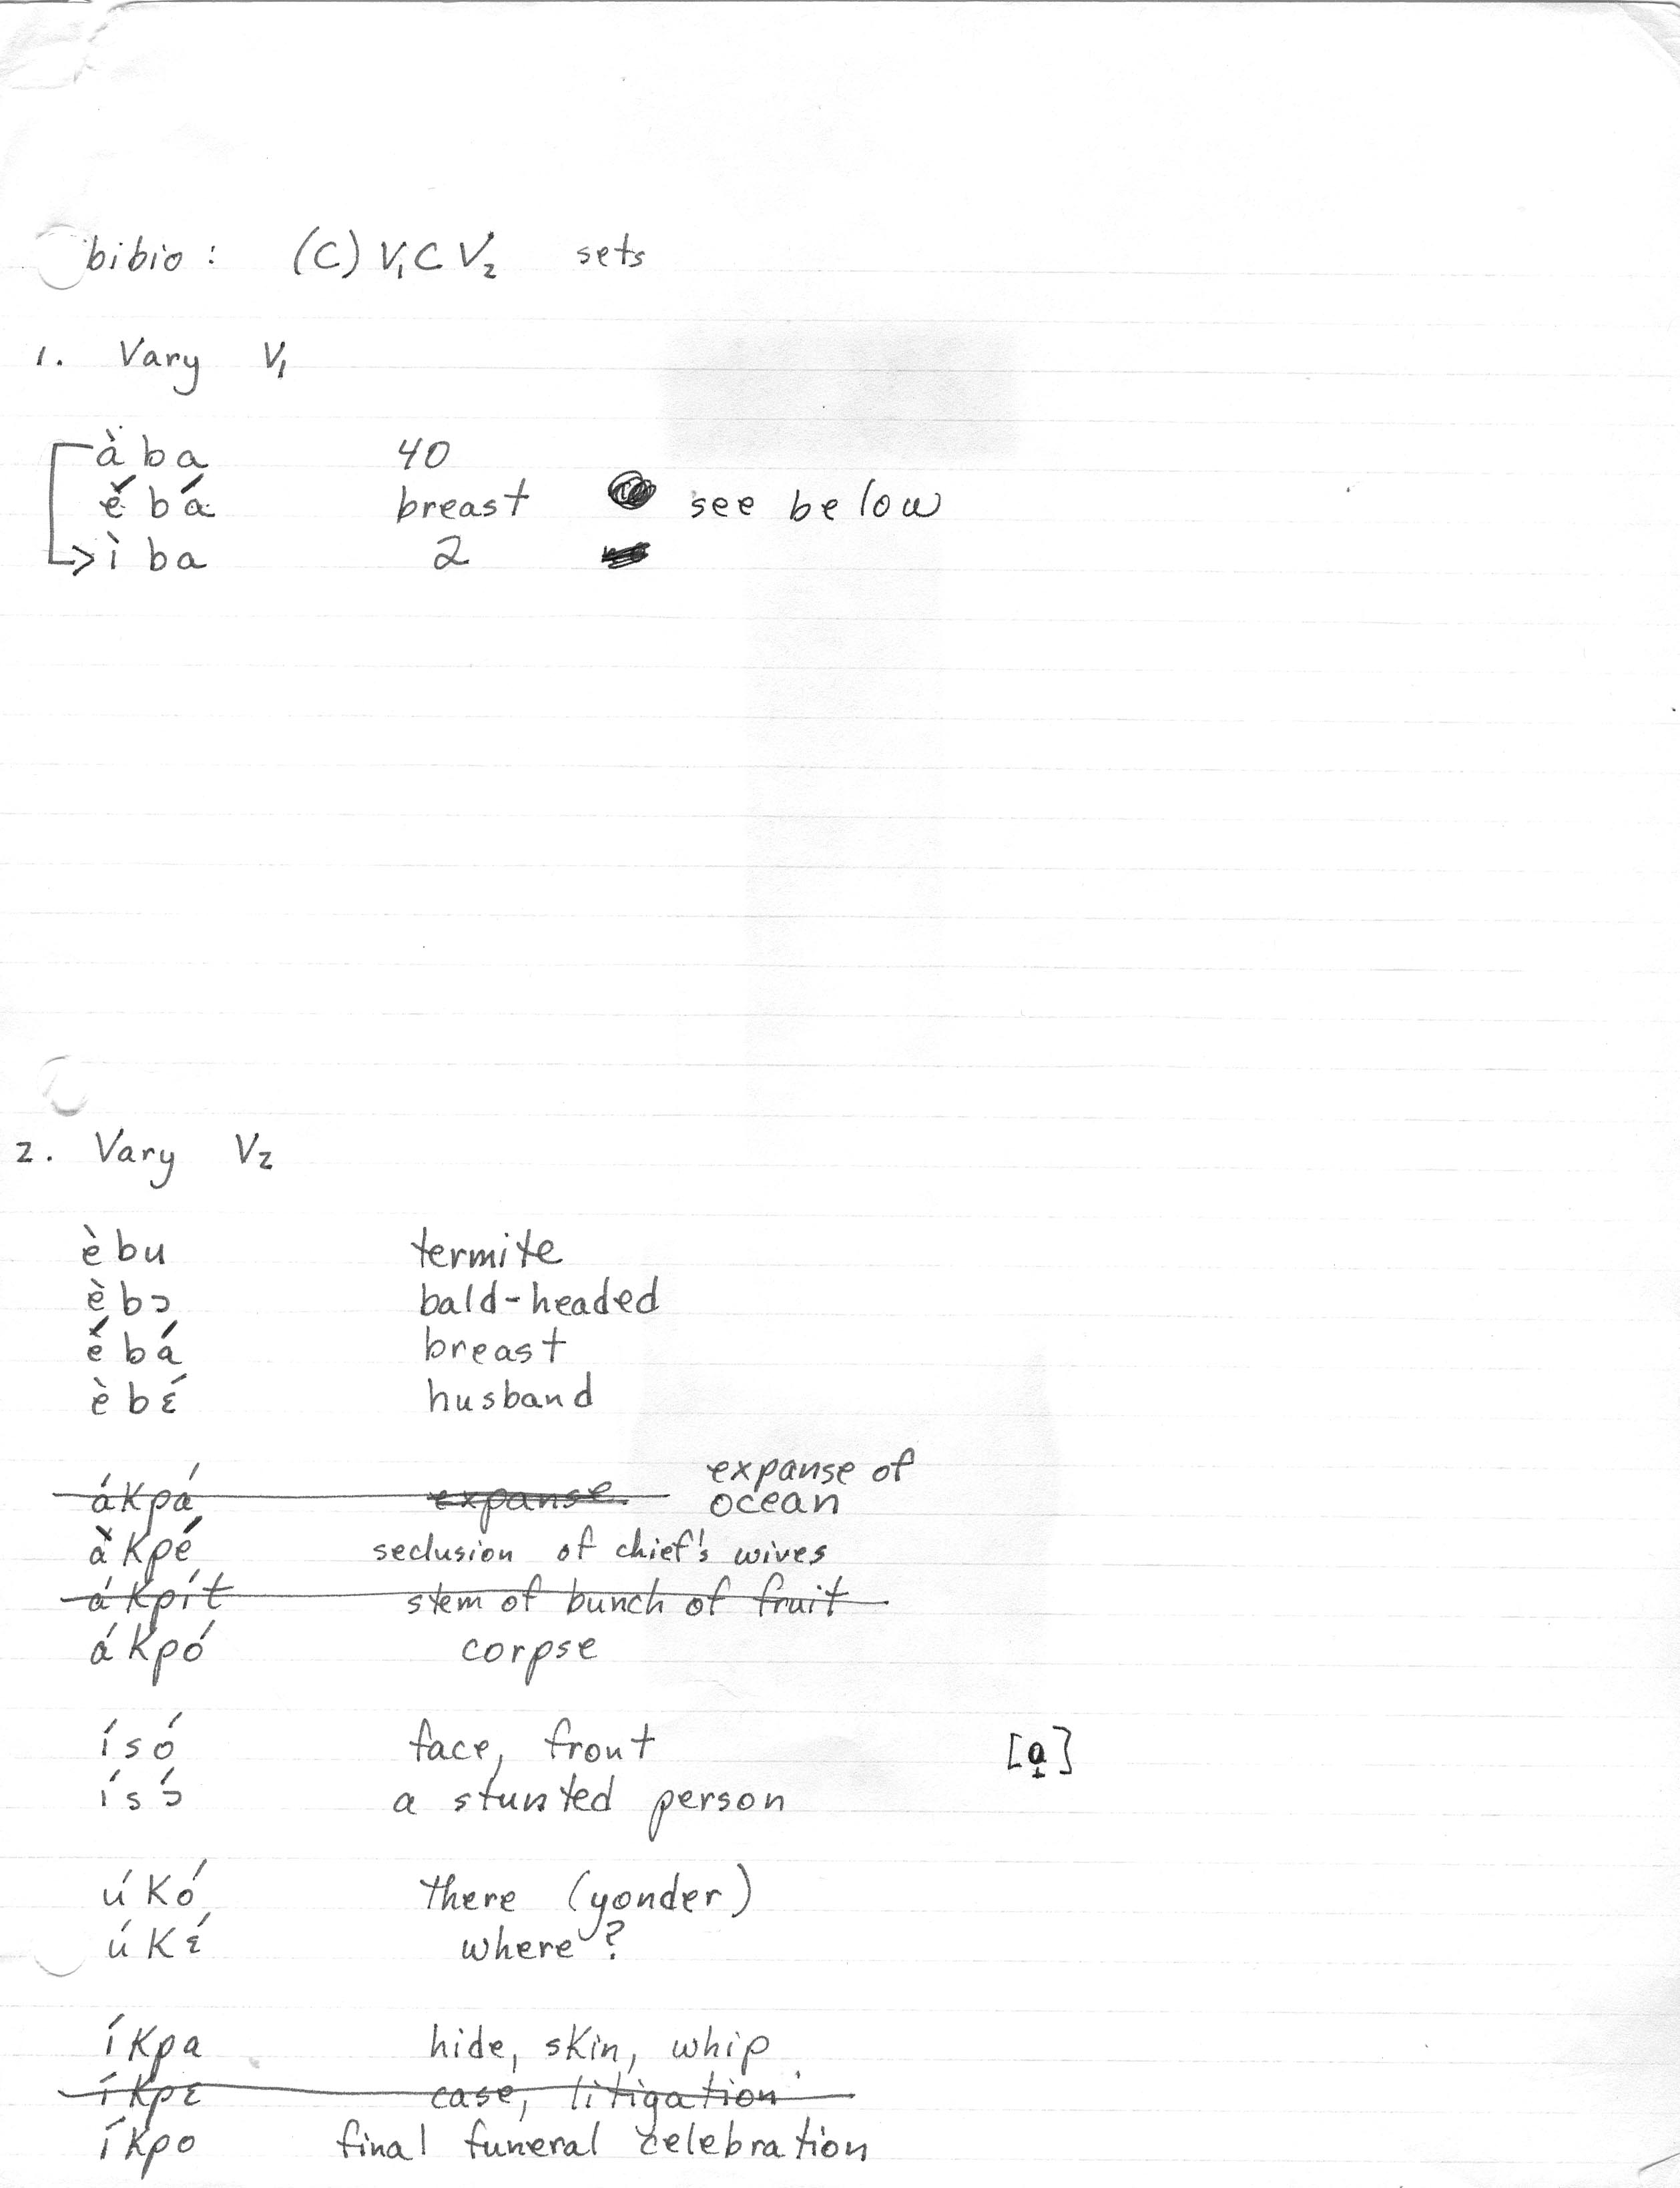 bibio: (C) V₁CV₂ sets
1. Vary V₁
àba 40
ébá breast see below
ìba 2
2. Vary V₂
èbu termite
èbɔ bald-headed
ébá breast
èbɛ́ husband
ákpá expanse expanse of
ocean
àkpé seclusion of chief's wives
ákpít stem of bunch of fruit
ákpó corpse
ísó face, front [a̱]
ísɔ́ a stunted person
úkó there (yonder)
úkɛ́ where?
íkpa hide, skin, whip
íkpɛ case, litigation
íkpo final funeral celebration